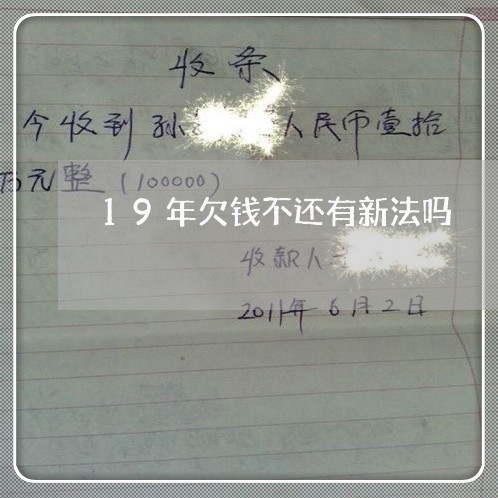 收条
今收到孙 人民币壹拾
万元整(100000)
19年欠钱不还有新法吗
收款人
2011年6月2日